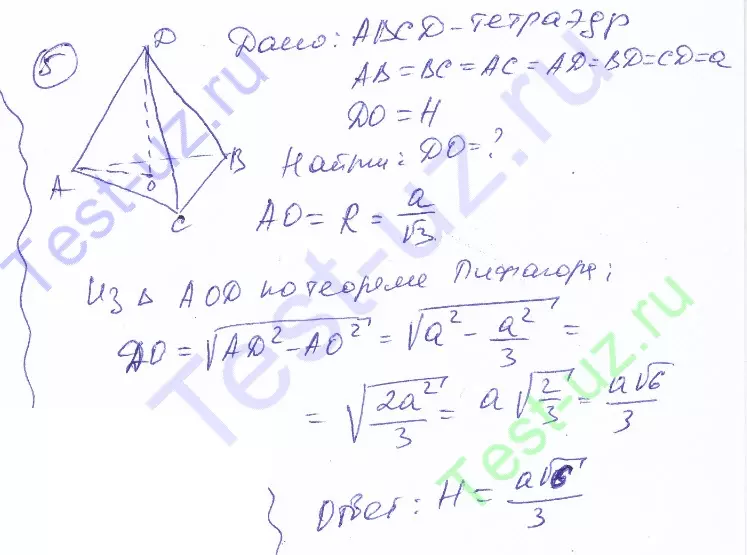 5
Дано: ABCD - тетраэдр
AB = BC = AC = AD = BD = CD = a
DO = H
Найти: DO = ?
D
A
B
O
C
AO = R = a/√3
Из △ AOD по теореме Пифагора:
DO = √(AD² - AO²) = √(a² - a²/3) =
= √(2a²/3) = a√(2/3) = a√6/3
Ответ: H = a√6/3
Test-uz.ru
Test-uz.ru
Test-uz.ru